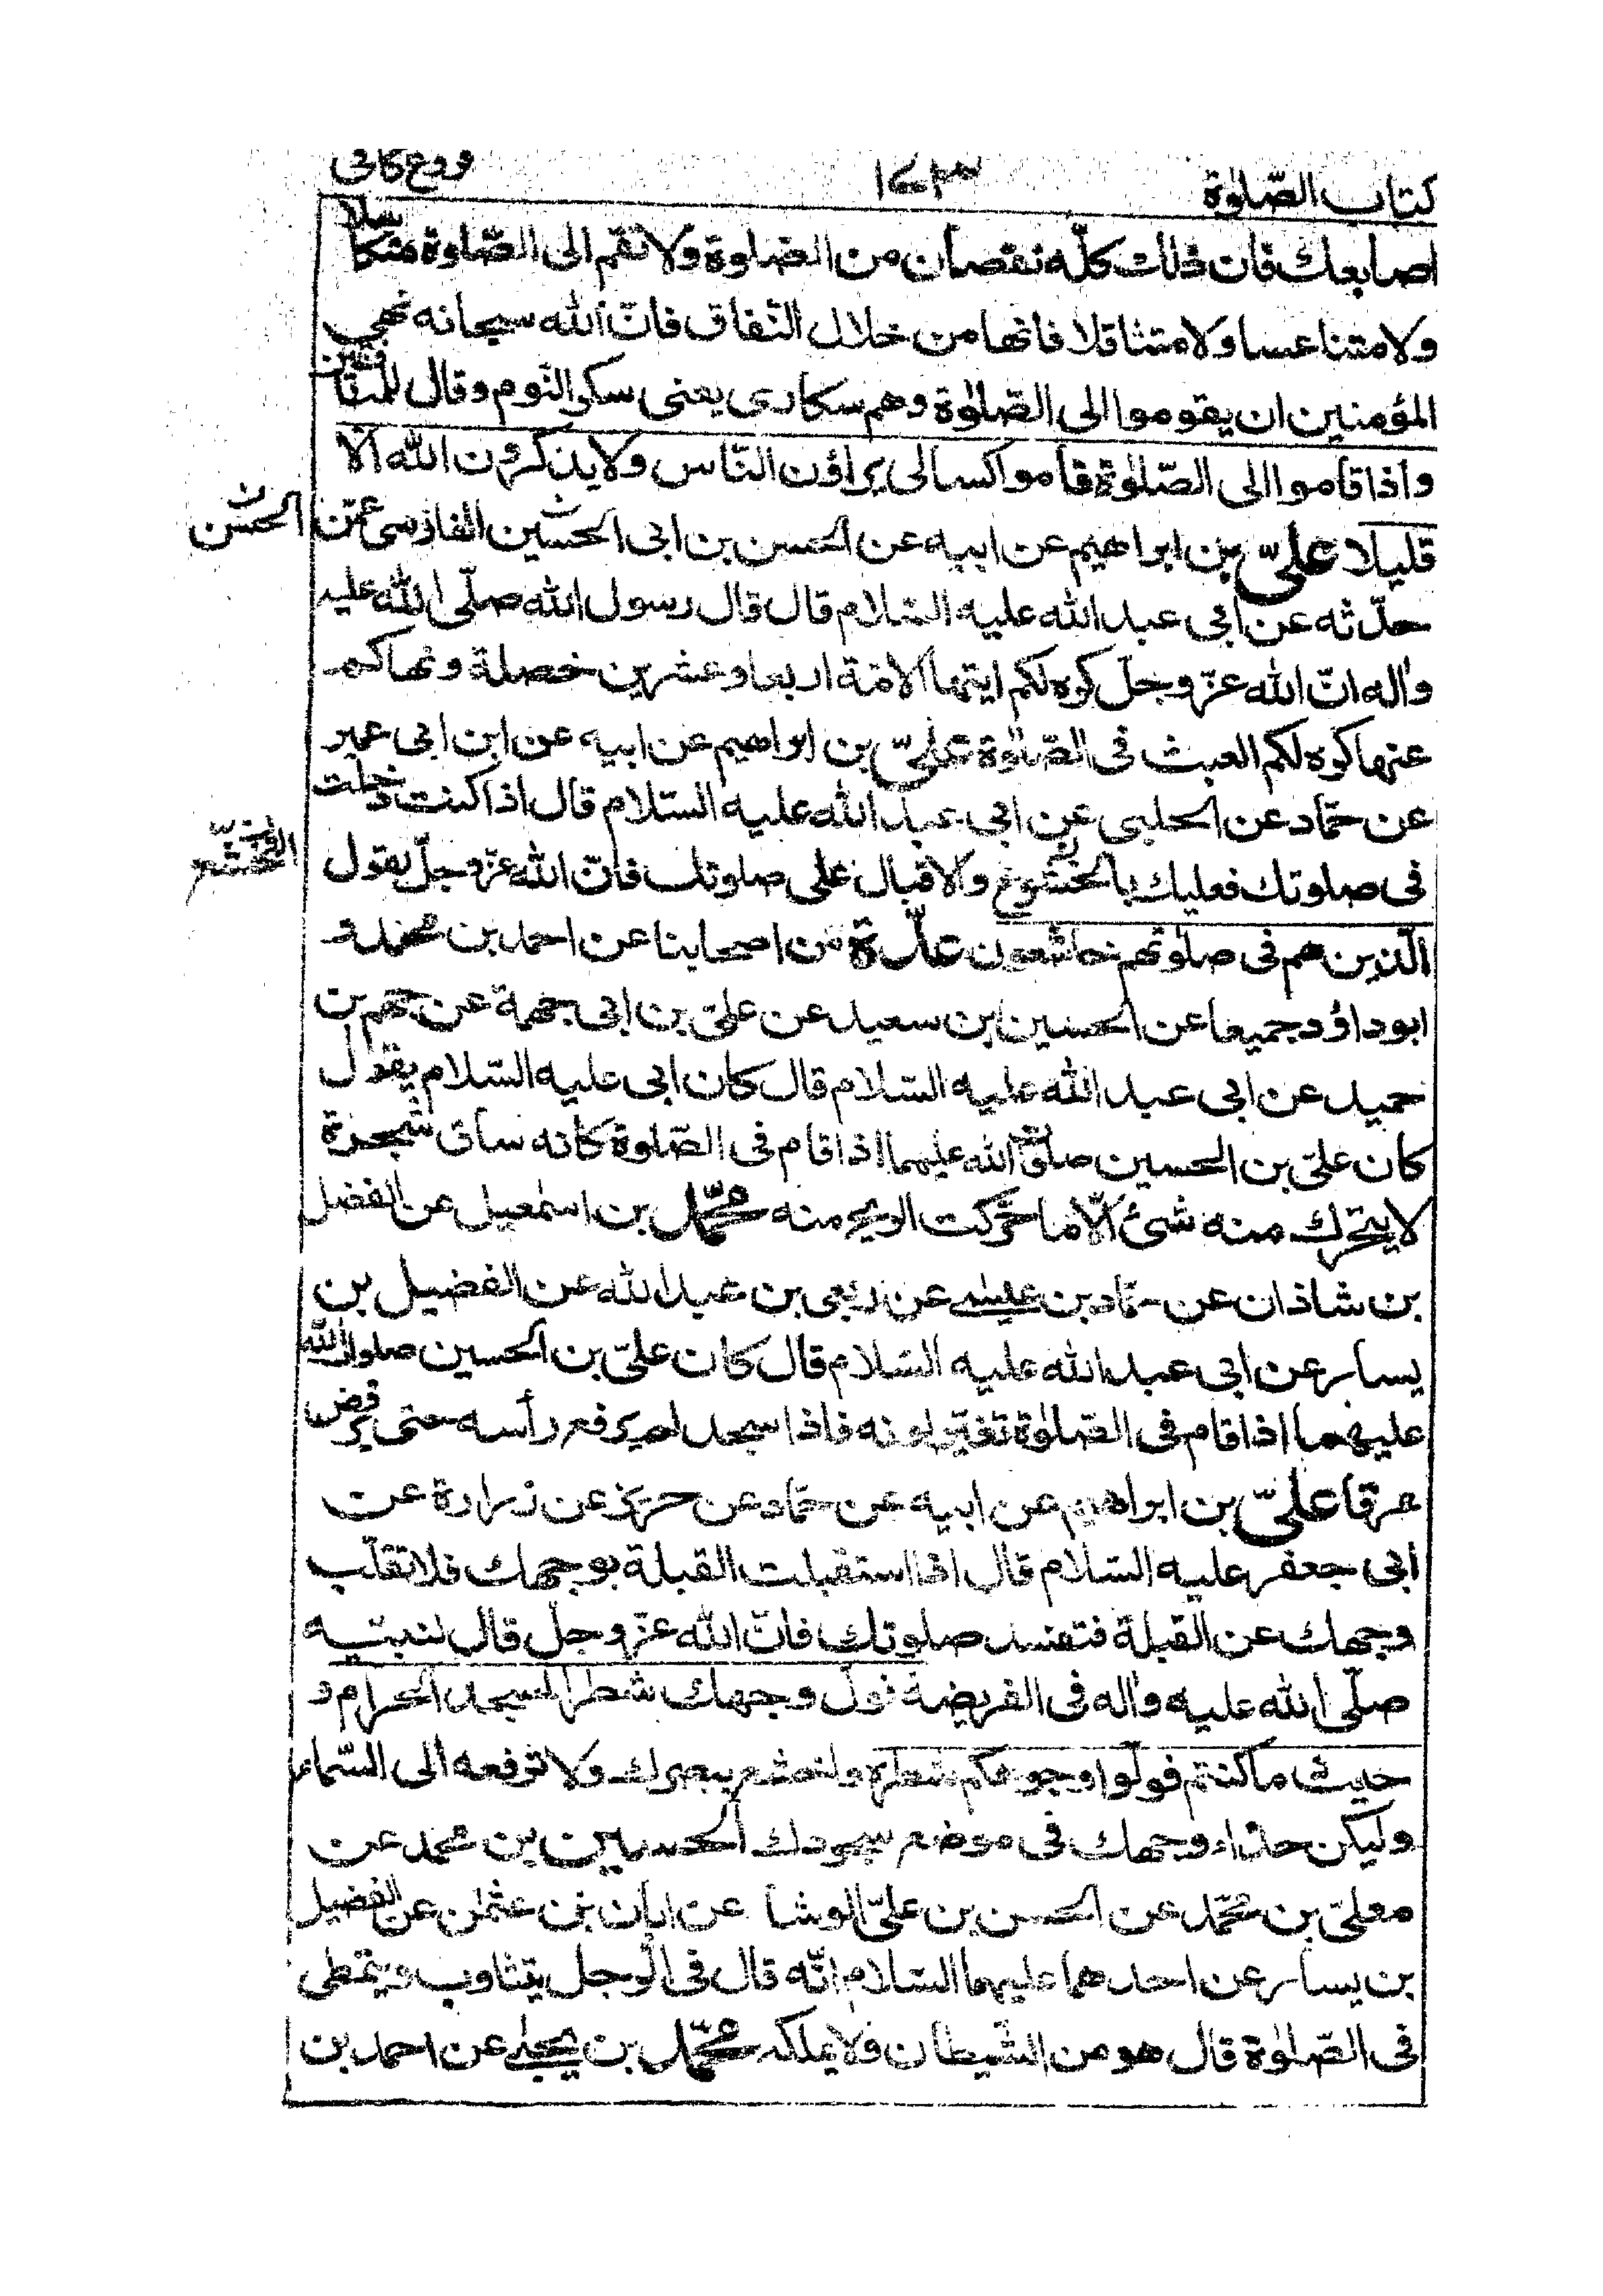 كتاب الصّلوٰة ١٧٣ فروع كافى
اصابعك فان ذلك كلّه نقصان من الصّلوة ولا تقم الى الصّلوة متكاسلا
ولا متناعسا ولا متثاقلا فانها من خلال النّفاق فانّ الله سبحانه نهى
المؤمنين ان يقوموا الى الصّلوٰة وهم سكارى يعنى سكر النّوم وقال للمنافقين
واذا قاموا الى الصّلوٰة قاموا كسالى يراؤن النّاس ولا يذكرون الله الّا
قليلا علىّ بن ابراهيم عن ابيه عن الحسن بن ابى الحسين الفارسى عمّن
الحسن
حدّثه عن ابى عبد الله عليه السّلام قال قال رسول الله صلّى الله عليه
واٰله انّ الله عزّ وجلّ كره لكم ايتها الامّة اربعا وعشرين خصلة ونهاكم
عنها كره لكم العبث فى الصّلوٰة علىّ بن ابراهيم عن ابيه عن ابن ابى عمير
عن حمّاد عن الحلبى عن ابى عبد الله عليه السّلام قال اذا كنت دخلت
فى صلوتك فعليك بالخشوع والاقبال على صلوتك فانّ الله عزّ وجلّ يقول
الّذين هم فى صلوٰتهم خاشعون عدّة من اصحابنا عن احمد بن محمد و
ابو داؤد جميعا عن الحسين بن سعيد عن علىّ بن ابى جهمة عن جهم بن
حميد عن ابى عبد الله عليه السّلام قال كان ابى عليه السّلام يقول
كان علىّ بن الحسين صلوٰت الله عليهما اذا قام فى الصّلوة كانه ساق شجرة
لا يتحرك منه شئ الّا ما حرّكت الريح منه محمّد بن اسمٰعيل عن الفضل
بن شاذان عن حمّاد بن عيسى عن ربعى بن عبد الله عن الفضيل بن
يسار عن ابى عبد الله عليه السّلام قال كان علىّ بن الحسين صلوات الله
عليهما اذا قام فى الصّلوٰة تغيّر لونه فاذا سجد لم يرفع رأسه حتى يرفض
عرقا علىّ بن ابراهيم عن ابيه عن حمّاد عن حريز عن زرارة عن
ابى جعفر عليه السّلام قال اذا استقبلت القبلة بوجهك فلا تقلّب
وجهك عن القبلة فتفسد صلوتك فانّ الله عزّ وجلّ قال لنبيّه
صلّى الله عليه واٰله فى الفريضة فولّ وجهك شطر المسجد الحرام و
حيث ما كنتم فولّوا وجوهكم شطره واخشع ببصرك ولا ترفعه الى السّماء
وليكن حذاء وجهك فى موضع سجودك الحسين بن محمد عن
معلىّ بن محمّد عن الحسن بن علىّ الوشا عن ابان بن عثمٰن عن الفضيل
بن يسار عن احدهما عليهما السّلام انّه قال فى الرّجل يتثاوب ويتمطى
فى الصّلوٰة قال هو من الشّيطان فلا يملكه محمّد بن يحيى عن احمد بن